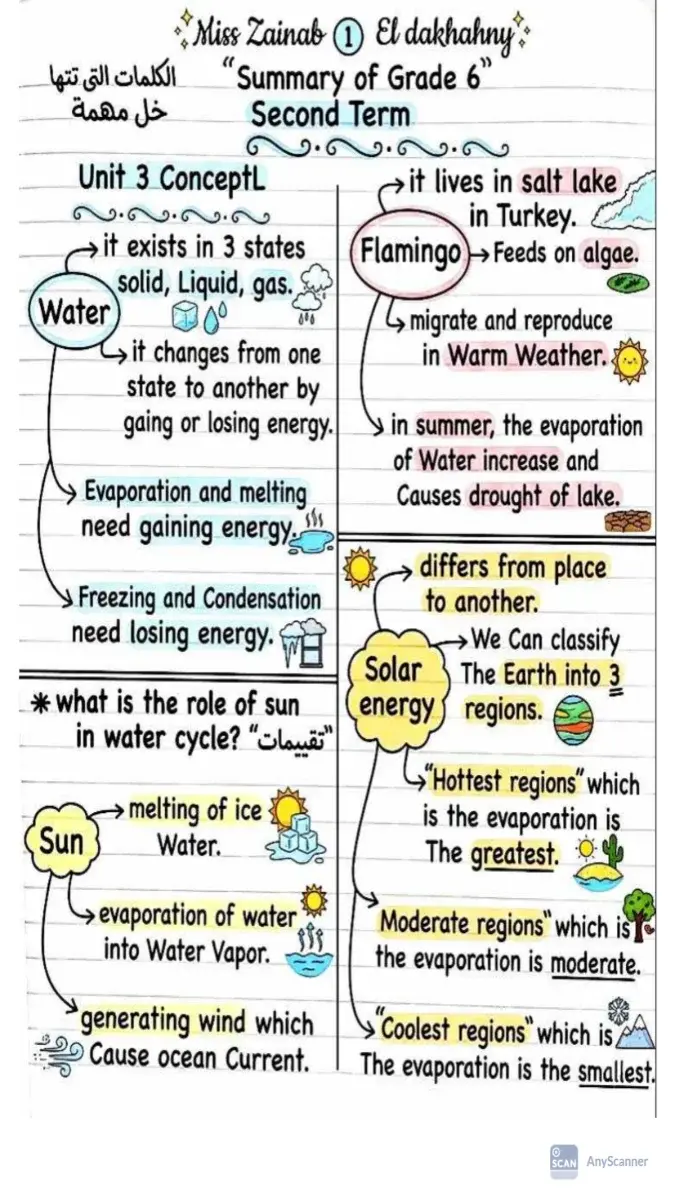 Miss Zainab 1 El dakhahny
"Summary of Grade 6"
الكلمات التى تتها
خل مهمة
Second Term
Unit 3 ConceptL
Water
it exists in 3 states
solid, Liquid, gas.
it changes from one
state to another by
gaing or losing energy.
Evaporation and melting
need gaining energy.
Freezing and Condensation
need losing energy.
* what is the role of sun
in water cycle? "تقييمات"
Sun
melting of ice
Water.
evaporation of water
into Water Vapor.
generating wind which
Cause ocean Current.
Flamingo
it lives in salt lake
in Turkey.
Feeds on algae.
migrate and reproduce
in Warm Weather.
in summer, the evaporation
of Water increase and
Causes drought of lake.
Solar
energy
differs from place
to another.
We Can classify
The Earth into 3
regions.
"Hottest regions" which
is the evaporation is
The greatest.
Moderate regions" which is
the evaporation is moderate.
"Coolest regions" which is
The evaporation is the smallest.
SCAN AnyScanner